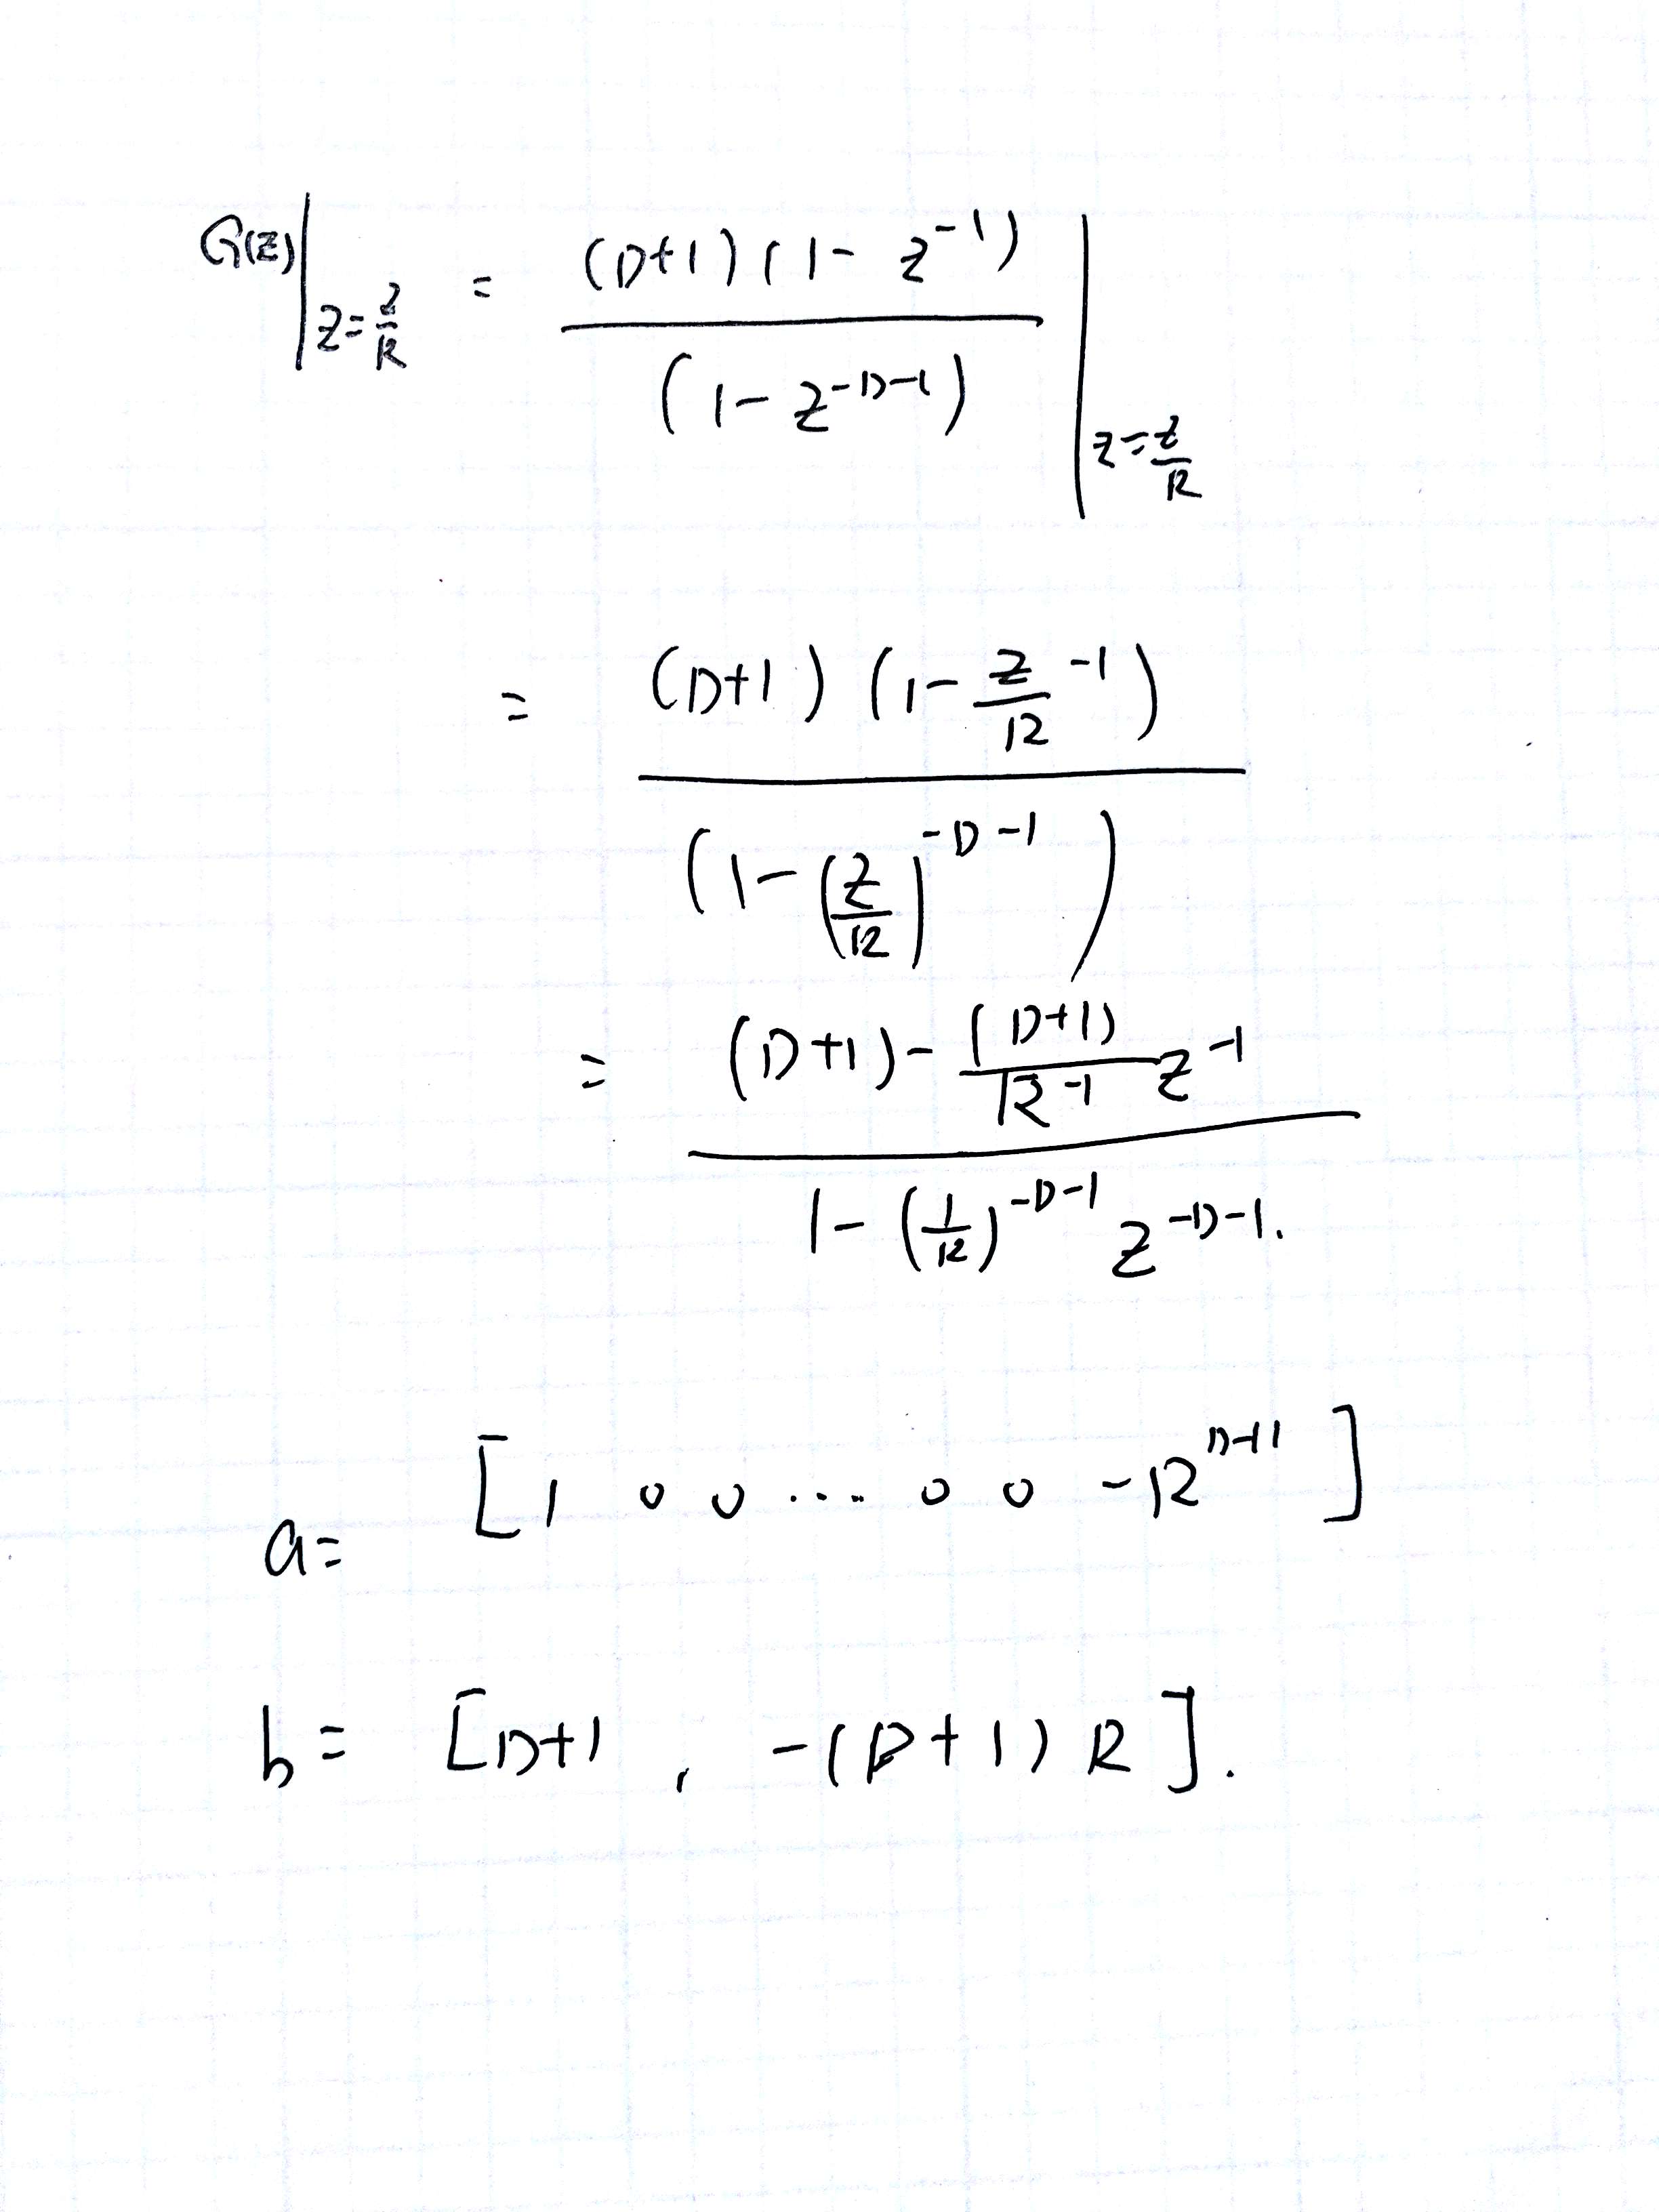 G(z)|_{z=z/R} = (D+1)(1-z^{-1}) / (1-z^{-D-1}) |_{z=z/R}
= (D+1)(1-\frac{z}{R}^{-1}) / (1-(\frac{z}{R})^{-D-1})
= (D+1)-\frac{(D+1)}{R^{-1}}z^{-1} / 1-(\frac{1}{R})^{-D-1} z^{-D-1}.
a= [1 0 0 ... 0 0 -R^{D+1}]
b= [D+1, -(D+1)R].